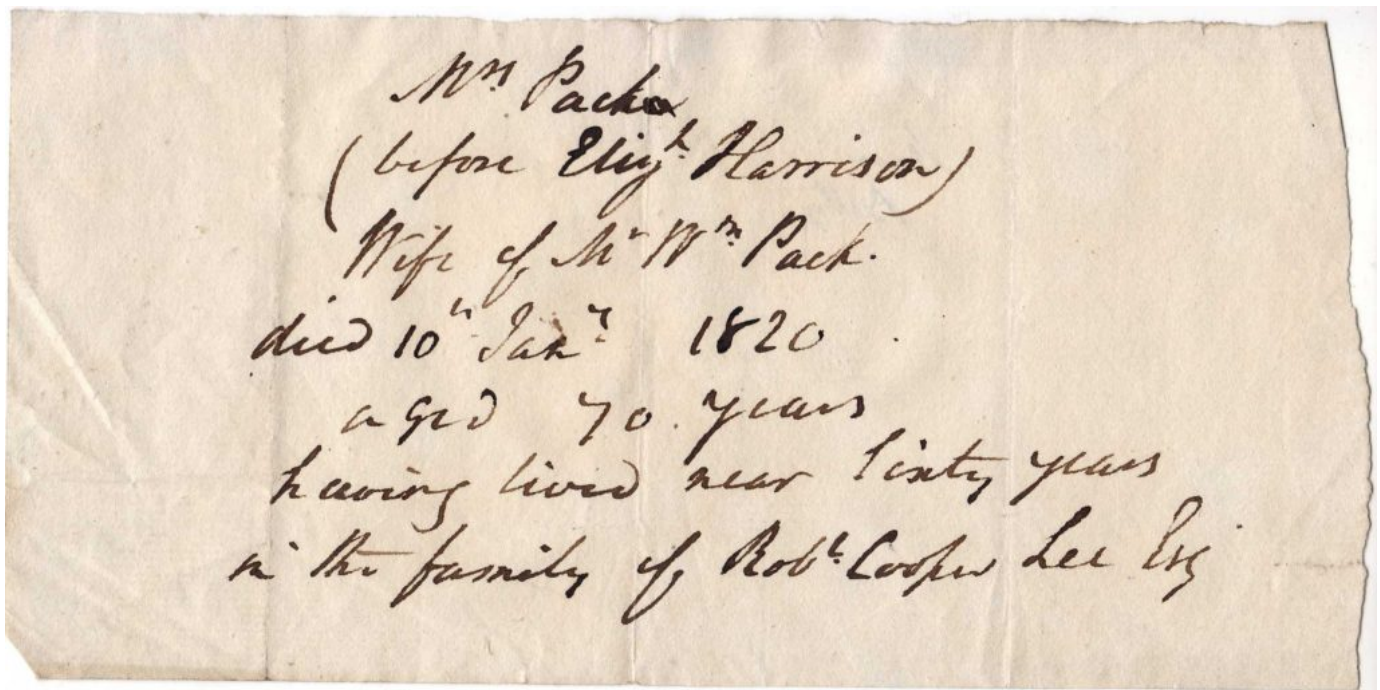 Mrs Pack
(before Elizh Harrison)
Wife of Mr Wm Pack.
died 10th Jany 1820
aged 70 years
having lived near Sixty years
in the family of Robt Cooper Lee Esq